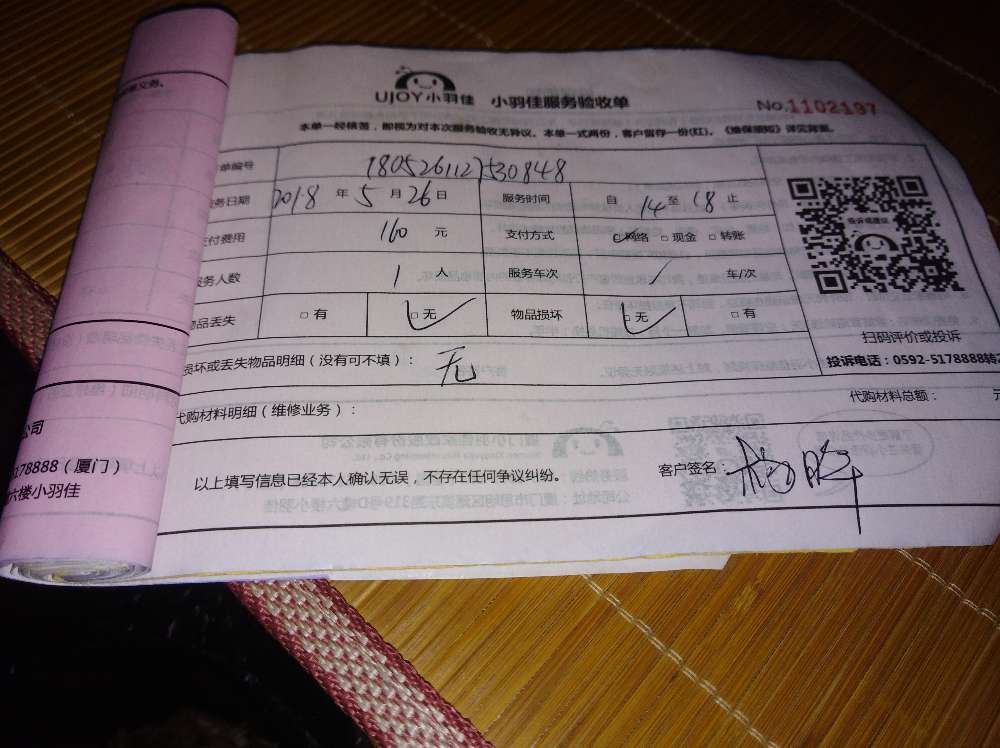 UJOY小羽佳 小羽佳服务验收单 No.1102197
本单一经核签，即视为对本次服务验收无异议。本单一式两份，客户留存一份(红)。《维保须知》详见背面。
单编号 180526112530848
务日期 2018 年 5 月 26 日 服务时间 自 14 至 18 止
支付费用 160 元 支付方式 □网络 □现金 □转账
服务人数 1 人 服务车次 / 车/次
物品丢失 □有 □无 物品损坏 □无 □有
投诉或建议
扫码评价或投诉
投诉电话：0592-5178888转2
损坏或丢失物品明细（没有可不填）： 无
代购材料明细（维修业务）： 代购材料总额： 元
以上填写信息已经本人确认无误，不存在任何争议纠纷。 客户签名：
义务。
公司
178888（厦门）
六楼小羽佳